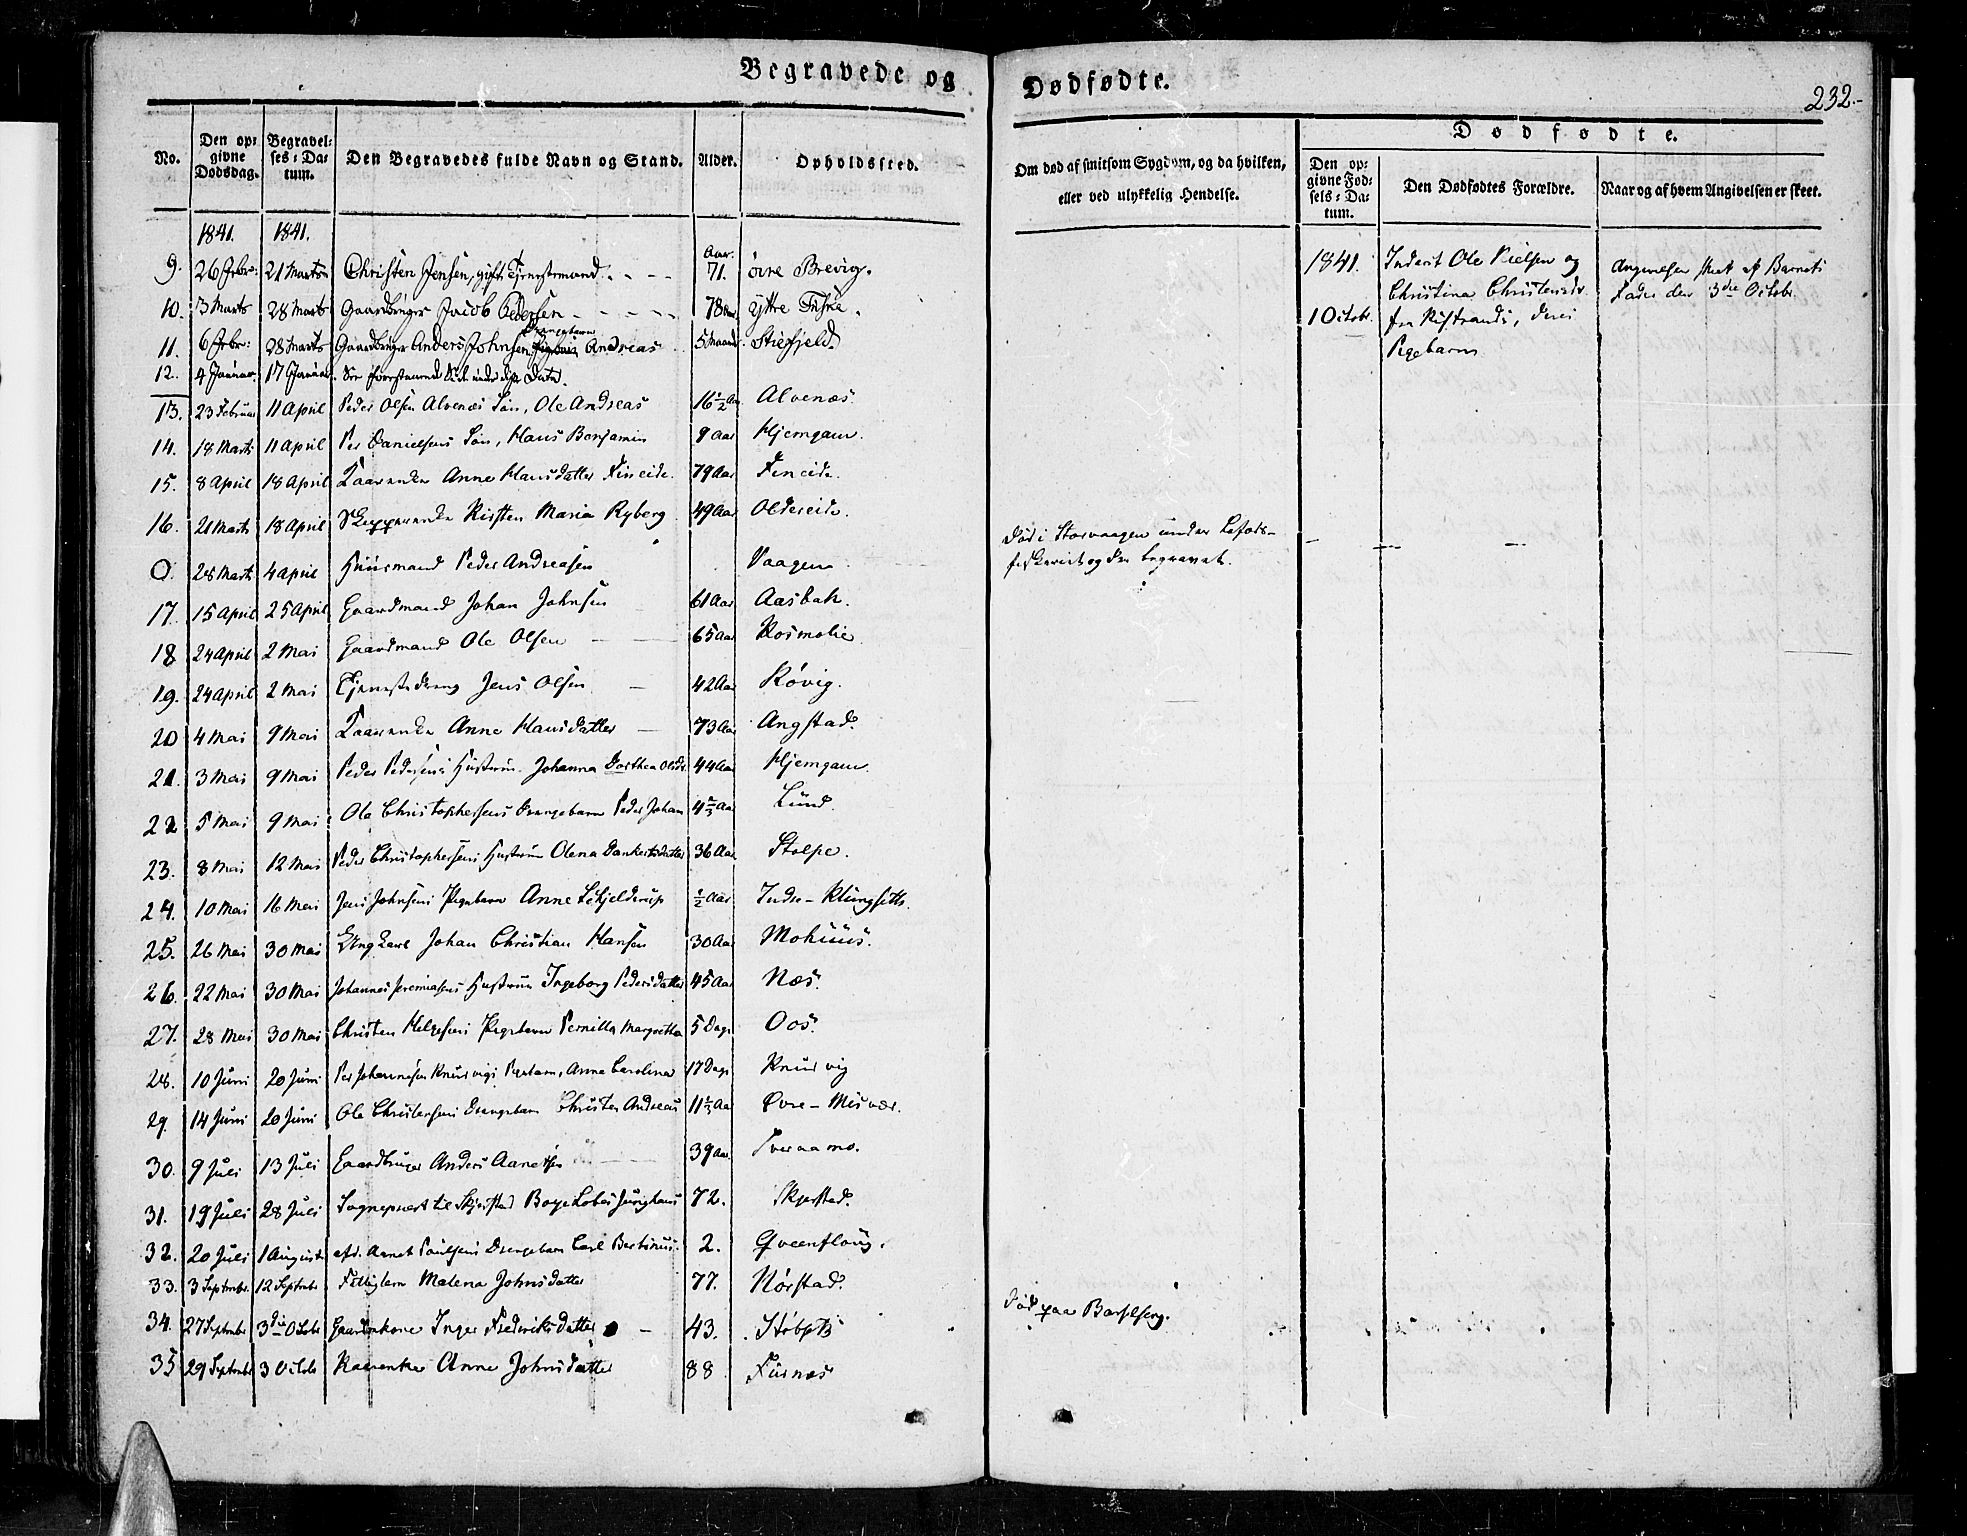 Begravede og
Dødfødte.
232.-
No.
Den op=
givne
Dødsdag.
Begravel=
ses=Da=
tum.
Den Begravedes fulde Navn og Stand.
Alder.
Opholdssted.
Om død af smitsom Sygdom, og da hvilken,
eller ved ulykkelig Hendelse.
Dødfødte.
Den op=
givne Fød=
sels=Da=
tum.
Den Dødfødtes Forældre.
Naar og af hvem Angivelsen er skeet.
1841. 1841.
9. 26 Febr: 21 Marts Christen Jensen, gift Tjenestemand. Aar. 71. övre Brevig.
10. 3 Marts 28 Marts Gaardbruger Jacob Pedersen 78 ytre
11. 6 Febr: 28 Marts Gaardbruger Anders Johnsens Drengebarn Andreas 5 Maand. Stiefjeld.
12. 4 Januar 17 Januar. See foranstaaende Side under denne Data.
13. 23 Februar 11 April Peder Olsen Alvenæs Søn, Ole Andreas 16½ Aar Alvenæs.
14. 18 Marts 11 April Per Danielsens Søn, Hans Benjamin 9 Aar Hjemgam.
15. 8 April 18 April Kaarenke Anne Hansdatter Fineide. 79 Aar Fineide.
16. 21 Marts 18 April Skipperenke Kirsten Maria Ryberg 49 Aar Oldereide.
0. 28 Marts 4 April Huusmand Peder Andreasen Vaagen
Død i Storvaagen under Lofots-
fiskeriet og der begravet.
17. 15 April 25 April Gaardmand Johan Johnsen 61 Aar Aasbak.
18 24 April 2 Mai Gaardmand Ole Olsen 65 Aar Kosmolie
19. 24 April 2 Mai Tjenestedreng Jens Olsen 42 Aar Røvig.
20 4 Mai 9 Mai Kaarenke Anne Hansdatter 73 Aar Angstad.
21. 3 Mai 9 Mai Peder Pedersens Hustrue Johanna Dorthea Olsdr 44 Aar Hjemgam.
22 5 Mai 9 Mai Ole Christophersens Drengebarn Peder Johan 4⅔ Aar Lund.
23. 8 Mai 12 Mai Peder Christophersens Hustrue Olena Dankertsdatter 36 Aar Stolpe.
24. 10 Mai 16 Mai Jens Johnsens Pigebarn Anne Schjelderup ½ Aar Indre-Klungsett.
25. 26 Mai 30 Mai Ungkarl Johan Christian Hansen 30 Aar Mohuus.
26. 22 Mai 30 Mai Johannes Jeremiasens Hustrue Ingeborg Pedersdatter 45 Aar Næs.
27. 28 Mai 30 Mai Christen Helgesens Pigebarn Pernilla Margretha 5 Dage Oos.
28. 10 Juni 20 Juni Per Johannesen Knurvigs Pigebarn, Anne Carolina 17 Dage Knurvig
29. 14 Juni 20 Juni Ole Christensens Drengebarn Christen Andreas 11⅓ Aar Øvre-Misvær.
30. 9 Juli 13 Juli Gaardbruger Anders Aanetsen 39 Aar. Tveraamo.
31. 19 Juli 28 Juli Sognepræst til Skjerstad Boye Lobes Junghans 72. Skjerstad.
32. 20 Juli 1 August afd. Aanet Poulsens Drengebarn Carl Bertinus. 2. Qveenfloug.
33. 3 September 12 September Fattiglem Malena Johnsdatter 77. Nörstad.
34. 27 September 3die Octobr Gaardmkone Inger Frederiksdatter 43.
Død paa Barselseng.
35 29 September 3 Octobr Kaarenke Anne Johnsdatter 88 Furnæs
1841.
1 Octobr.
Inderst Ole Nielsen og
Christina Christensdr.
fra Ristrands, deres
Pigebarn
Angivelsen skeet af Barnets
Fader den 3die Octobr.